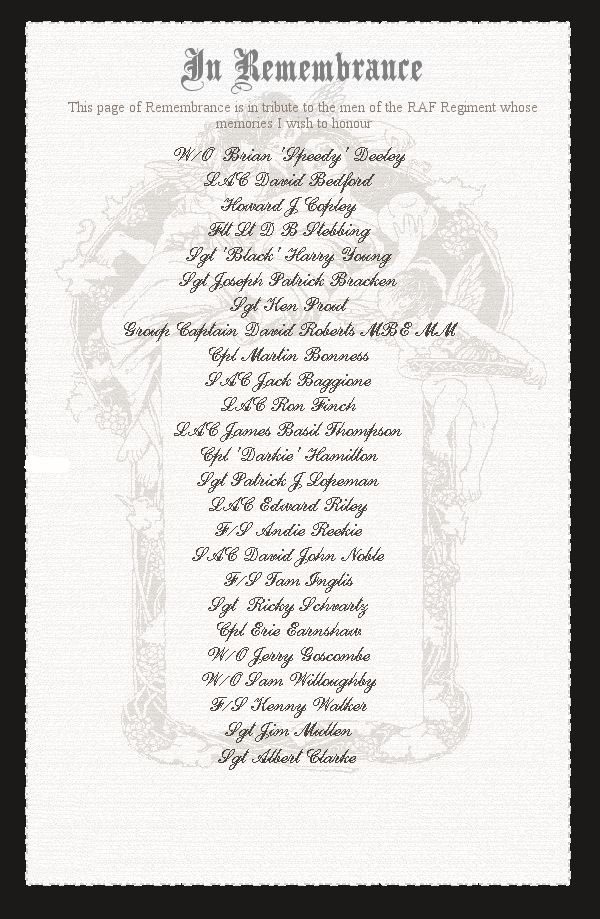 In Remembrance
This page of Remembrance is in tribute to the men of the RAF Regiment whose
memories I wish to honour
W/O Brian 'Speedy' Deeley
LAC David Bedford
Howard J Copley
Flt Lt D B Stebbing
Sgt 'Black' Harry Young
Sgt Joseph Patrick Bracken
Sgt Ken Prout
Group Captain David Roberts MBE MM
Cpl Martin Bonness
SAC Jack Baggione
LAC Ron Finch
LAC James Basil Thompson
Cpl 'Darkie' Hamilton
Sgt Patrick J Lopeman
LAC Edward Riley
F/S Andie Reekie
SAC David John Noble
F/S Tam Inglis
Sgt Ricky Schwartz
Cpl Eric Earnshaw
W/O Jerry Goscombe
W/O Sam Willoughby
F/S Kenny Walker
Sgt Jim Mullen
Sgt Albert Clarke